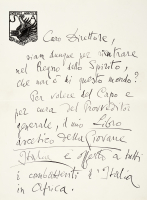 Caro Direttore,
siam dunque per rientrare
nel Regno dello Spirito,
che non è di questo mondo?
Per volere del Capo e
per cura del Provveditor
generale, il mio Libro
ascetico della Giovane
Italia è offerto a tutti
i combattenti d'Italia
in Africa.